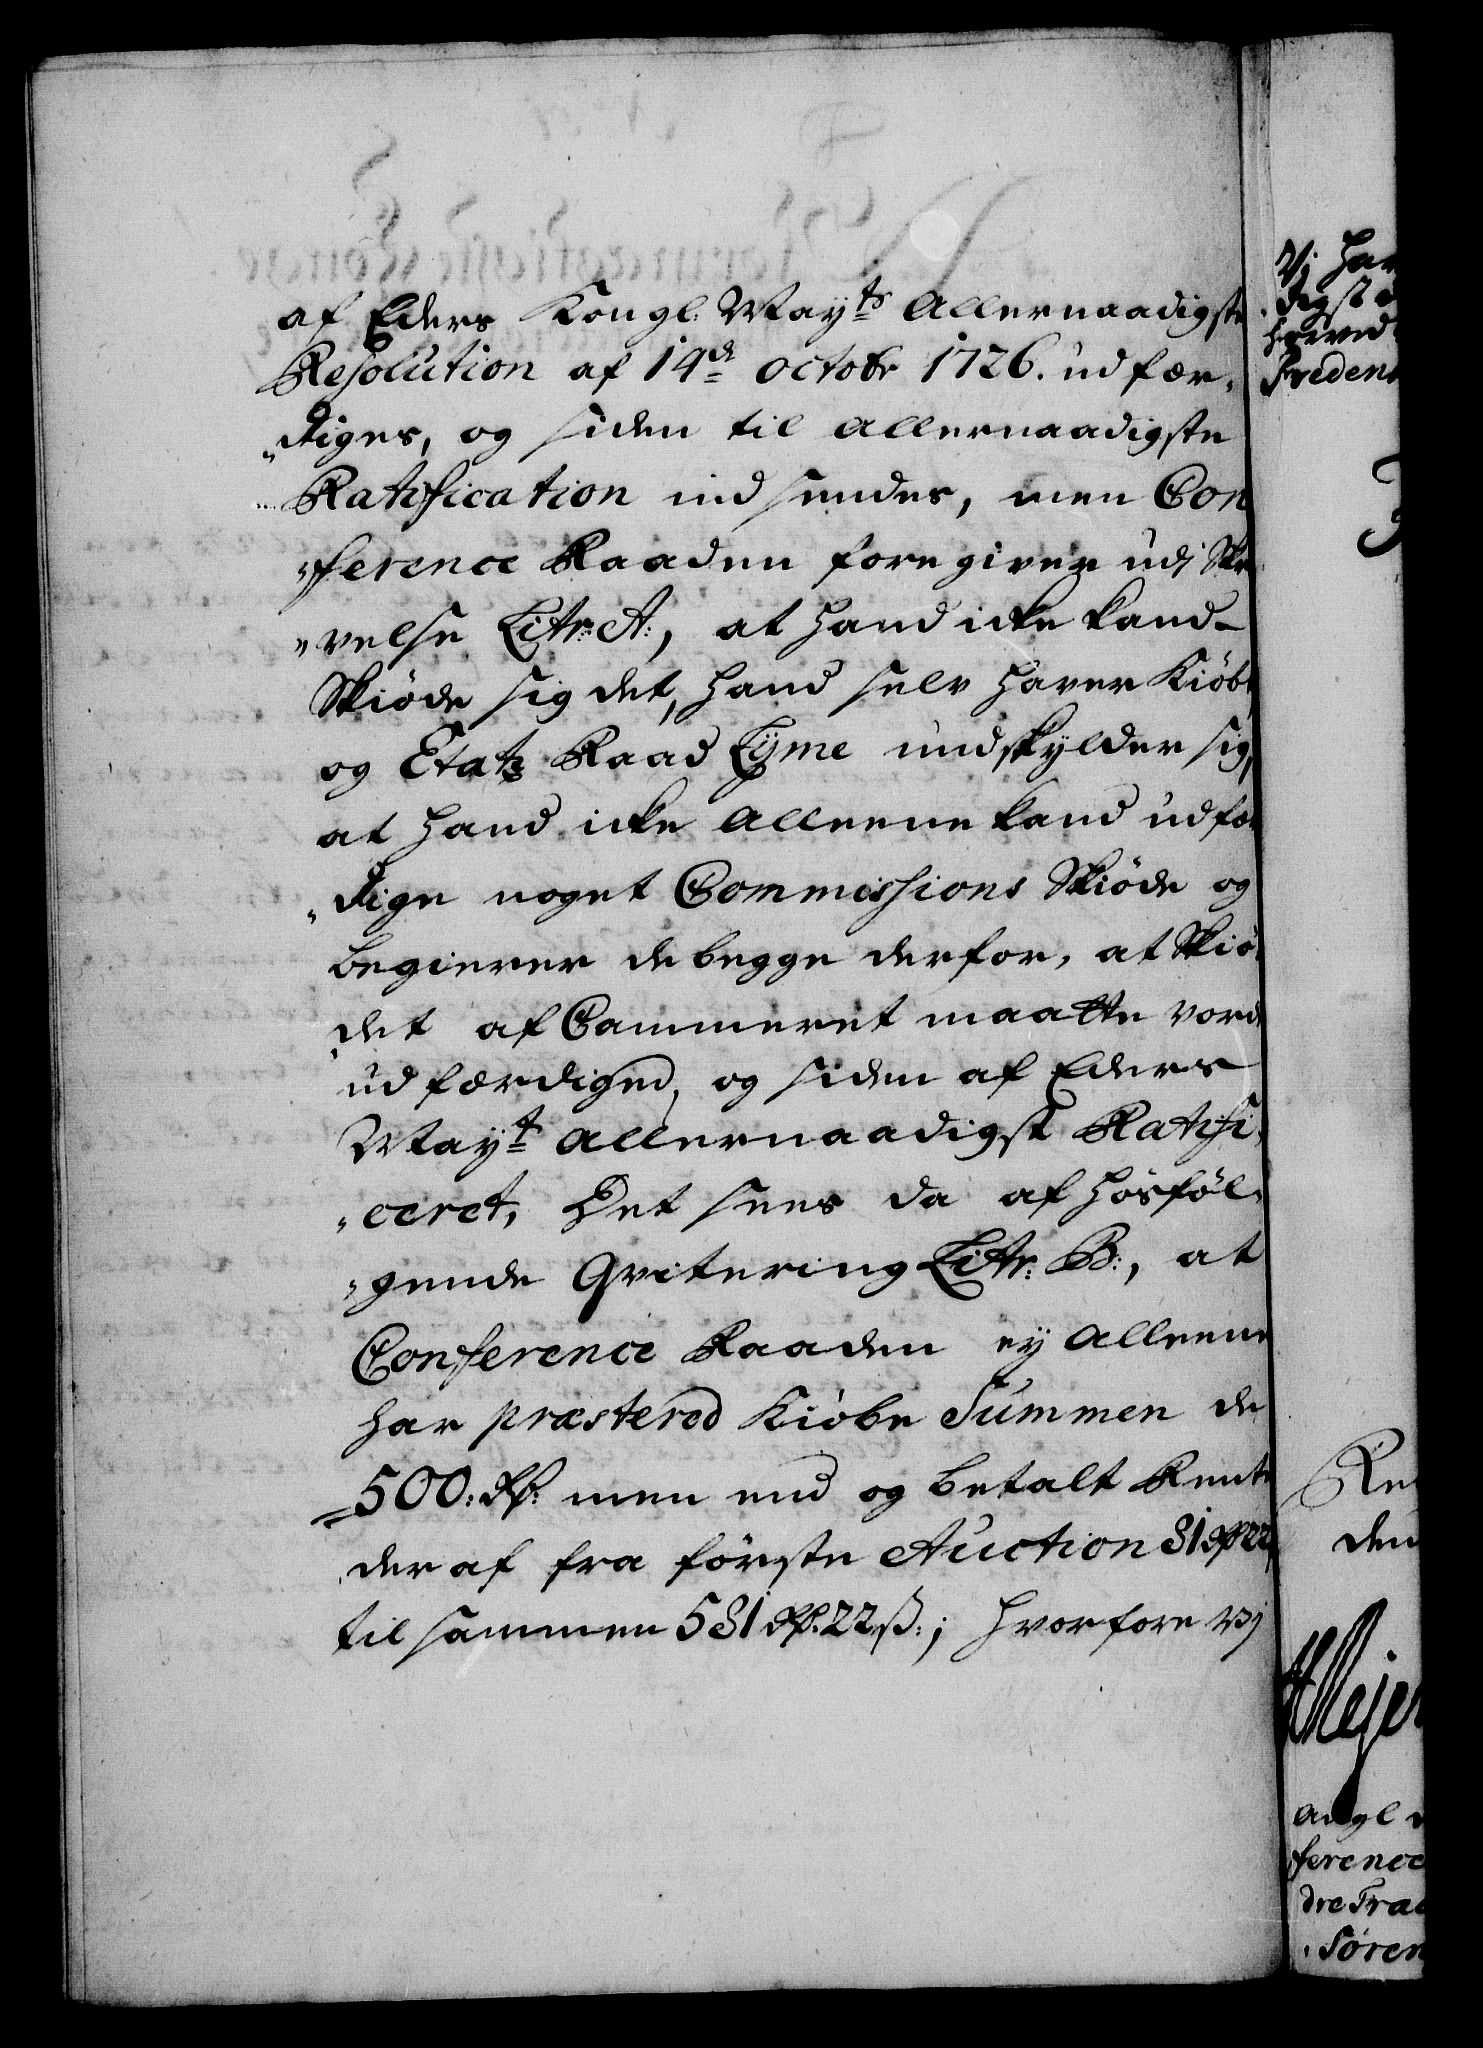 af Eders Kongl: May:ts Allernaadigste
Resolution af 14de octobr 1726. udfær-
diges, og siden til Allernaadigste
Ratification indsendes, men Con
ference Raaden foregiver udj Skr
velse Litr: A:, at hand icke kand
Skiöde sig det, hand selv haver Kiöbt
og Etatz Raad Lÿme undskylder sig,
at hand icke Alleene kand udfær
dige noget Commissions Skiöde og
begierer de begge derfor, at Skiö
det af Cammeret maatte vorde
udfærdiged, og siden af Eders
May:t Allernaadigst Ratifi-
ceret, Det sees da af hosföl-
gende Qvitering Litr: B:, at
Conference Raaden ey Alleene
har præstered Kiöbe Summen de
500: Rd: men end og betalt Rente
der af fra förste Auction 81 Rd 22
tilsammen 581 Rd. 22 ß:; hvorfore vj
Vj har
digst
herved
Re
den
Meyer
ference
dre
Sören